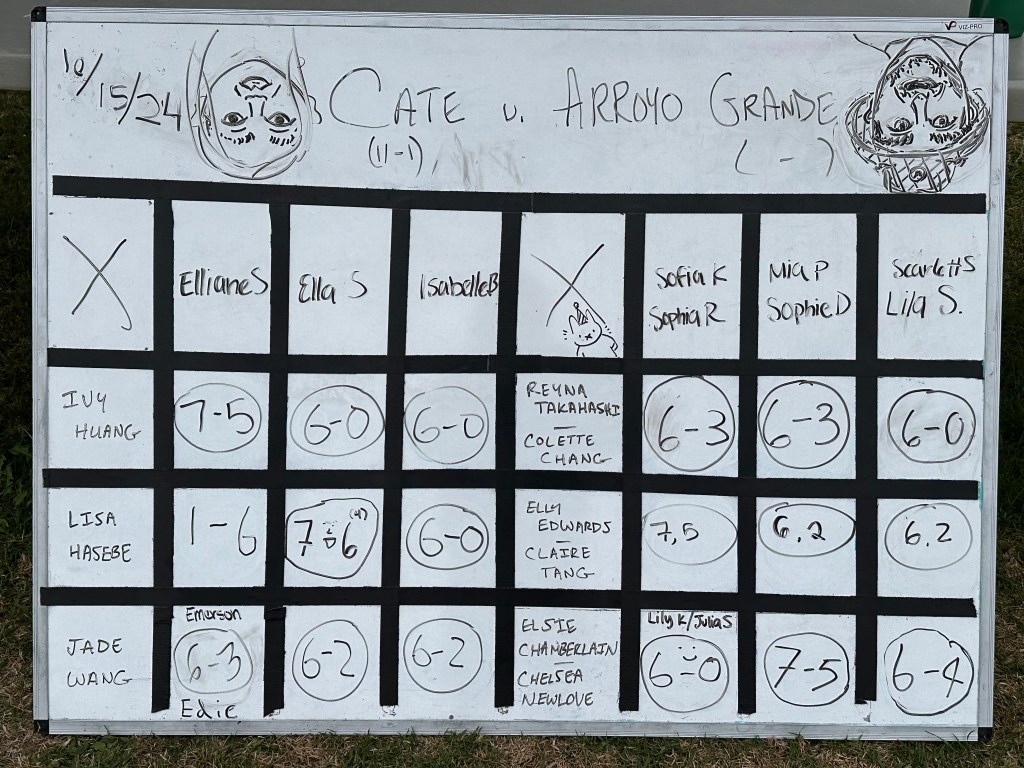 VIZ-PRO
10/15/24 CATE v. ARROYO GRANDE
(11-1) ( - )
X EllianeS Ella S IsabelleB X Sofia K Mia P ScarlettS
Sophia R Sophie D Lila S.
IVY HUANG 7-5 6-0 6-0 REYNA TAKAHASHI — COLETTE CHANG 6-3 6-3 6-0
LISA HASEBE 1-6 7-6 (4) 6-0 ELLY EDWARDS — CLAIRE TANG 7,5 6,2 6,2
Emerson Lily K/Julia S
JADE WANG 6-3 6-2 6-2 ELSIE CHAMBERLAIN — CHELSEA NEWLOVE 6-0 7-5 6-4
Edie